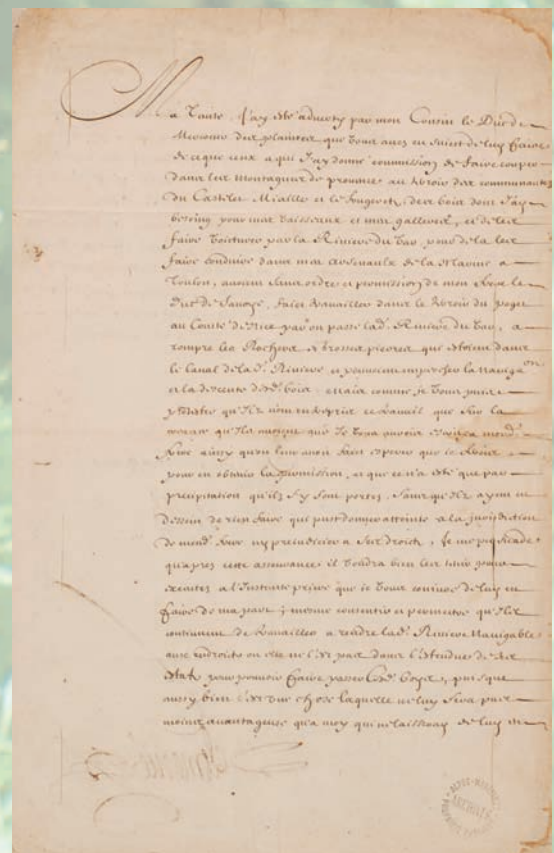 Ma Tante. J'ay esté adverty par mon Cousin le Duc de
Mercoeur des plaintes que vous avez eu suiet de luy faire
de ce que ceux a qui J'ay donné commission de faire couper
dans les montagnes de provence au terroir des communautes
du Castelet, Miailles et le Fougeret, des bois dont J'ay
besoing pour mes vaisseaux et mes galleres, et de les
faire voicturer par la Riviere du Var, pour de la les
faire conduire dans mon Arsenal de la Marine a
Toulon, avoient sans ordre et permission de mon frere le
Duc de Savoye, faict travailler dans le terroir du
au Comté de Nice par où passe lad. Riviere du Var, a
rompre les Rochers et grosses pierres qui estoient dans
le Canal de lad. Riviere, et pouvoient empescher la navigaon
et la descente desd. bois. Mais comme je vous puis
qu'ilz n'ont entrepris ce travail que sur la
qu'ilz avoient que Je vous avois escrit a mond.
frere ainsy qu'on leur avoit faict esperer que je ferois
pour en obtenir la permission, et que ce n'a esté que par
precipitation qu'ils s'y sont portez, sans qu'ilz ayent eu
dessein de rien faire qui pust donner atteinte a la jurisdiction
de mond. frere ny prejudicier a ses droits, Je me persuade
qu'apres cette assurance il voudra bien les tenir pour
excusez a l'Instante priere que je vous convie de luy en
faire de ma part, et mesme consentir et permettre qu'ilz
continuent de travailler a rendre lad. Riviere Navigable
aux endroits ou elle ne l'est pas dans l'estendue de ses
estats pour pouvoir faire passer lesd. boys, puis que
aussy bien c'est une chose laquelle ne luy sera pas
moins avantageuse qu'a moy qui ne laisseray de luy en
ARCHIVES